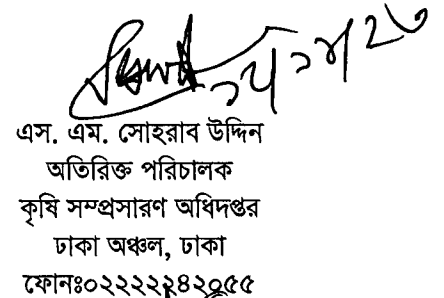 এস. এম. সোহরাব উদ্দিন
অতিরিক্ত পরিচালক
কৃষি সম্প্রসারণ অধিদপ্তর
ঢাকা অঞ্চল, ঢাকা
ফোনঃ০২২২২২৪২০৫৫